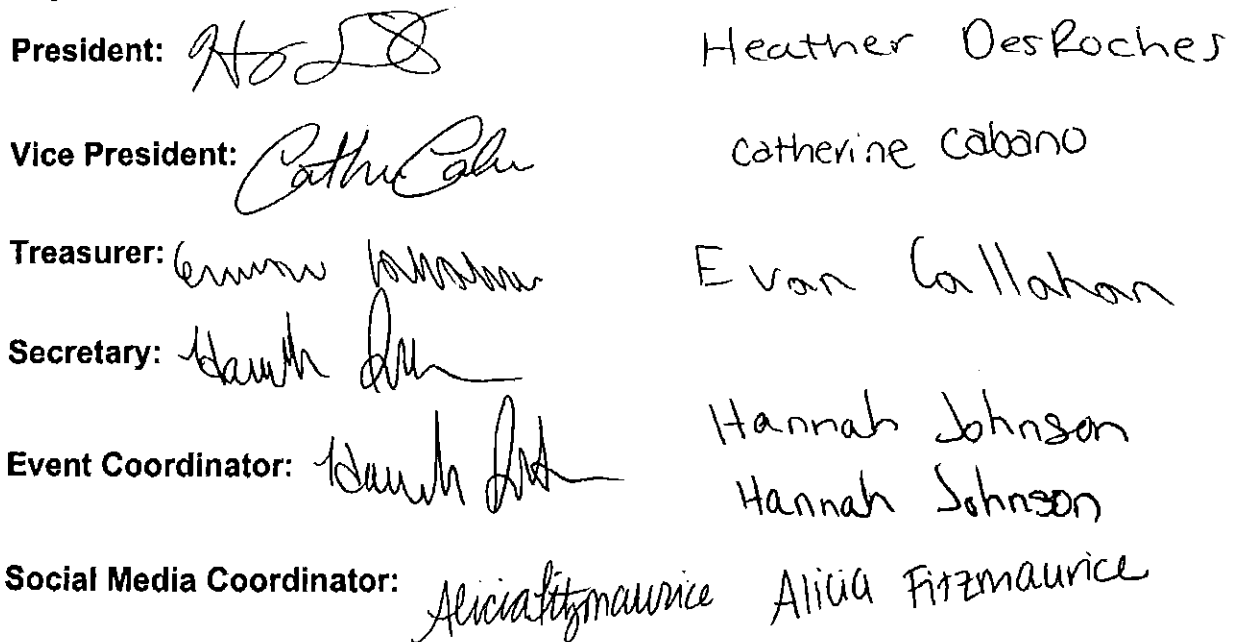 President: Heather DesRoches
Vice President: Catherine Cabano
Treasurer: Evan Callahan
Secretary: Hannah Johnson
Event Coordinator: Hannah Johnson
Social Media Coordinator: Alicia Fitzmaurice Alicia Fitzmaurice